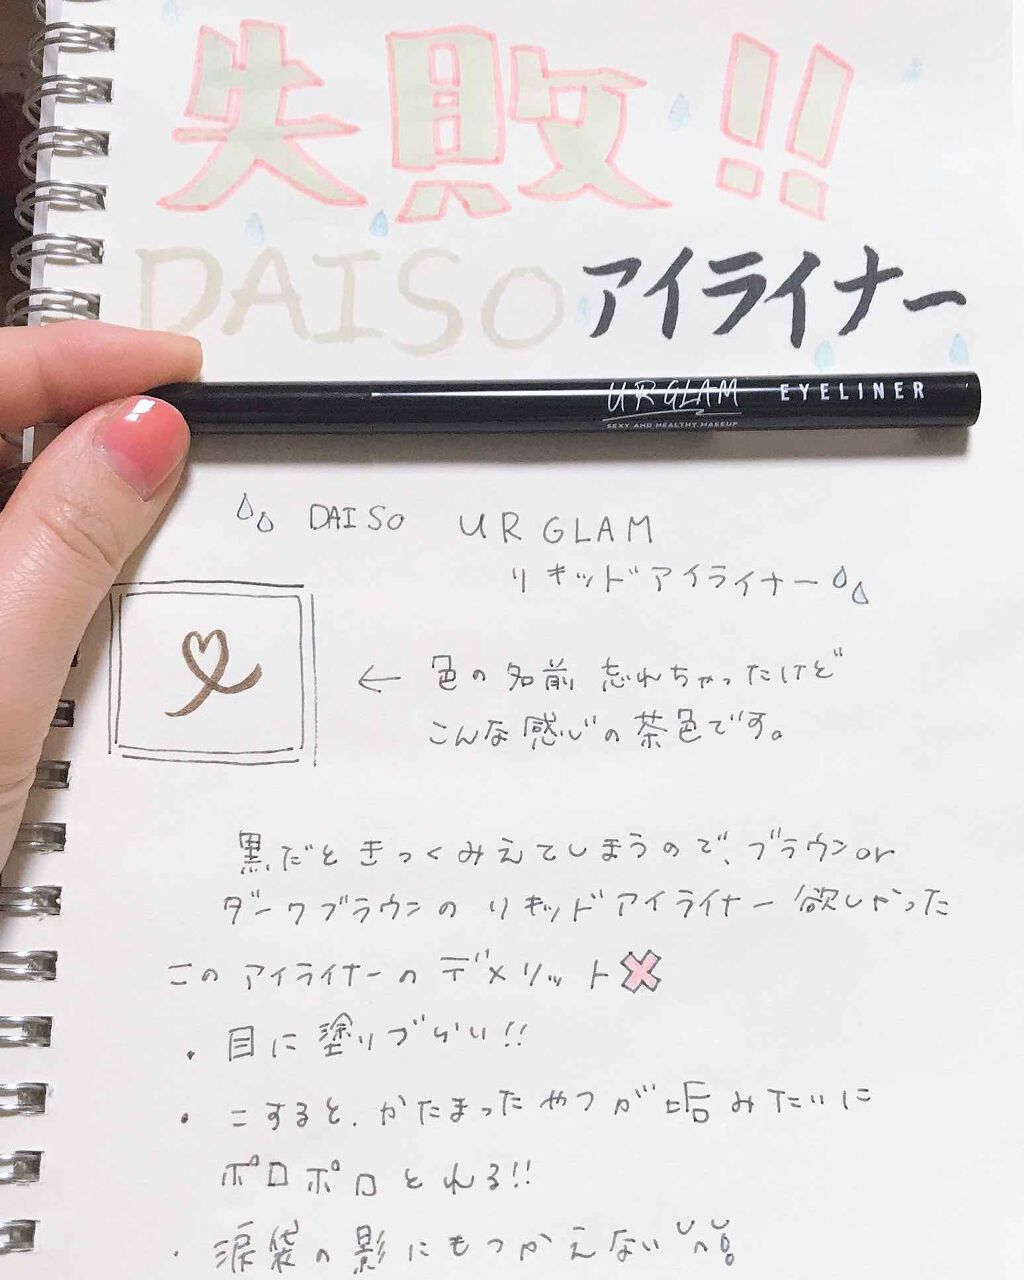 失敗!!
DAISO アイライナー
URGLAM EYELINER
SEXY AND HEALTHY MAKEUP
DAISO URGLAM
リキッドアイライナー
← 色の名前 忘れちゃったけど
こんな感じの茶色です。
黒だときつくみえてしまうので、ブラウンor
ダークブラウンのリキッドアイライナー欲しかった
このアイライナーのデメリット✖
・目に塗りづらい!!
・こすると、かたまったやつが垢みたいに
ポロポロとれる!!
・涙袋の影にもつかえない